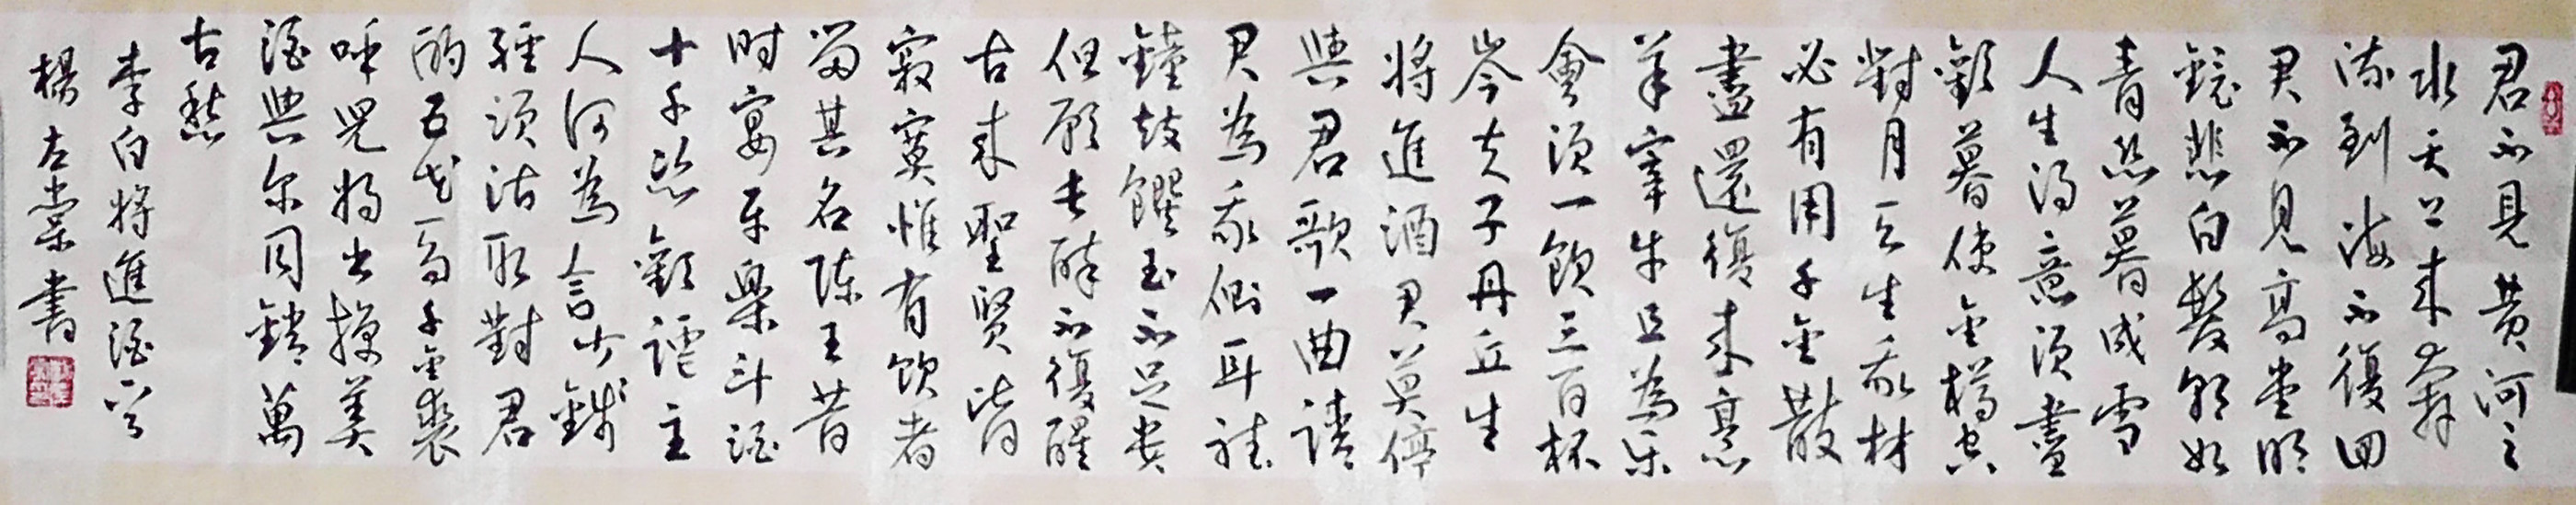 君不見黄河之
水天上来奔
流到海不復回
君不見高堂明
鏡悲白髮朝如
青丝暮成雪
人生得意須盡
歡暮使金樽空
對月天生我材
必有用千金散
盡還復来烹
羊宰牛且為乐
會須一飲三百杯
岑夫子丹丘生
將進酒君莫停
與君歌一曲請
君為我側耳聽
鐘鼓饌玉不足贵
但願长醉不復醒
古来聖贤皆
寂寞惟有飲者
留其名陈王昔
时宴平樂斗酒
十千恣歡謔主
人何為言少錢
徑須沽取對君
酌五花马千金裘
呼兒将出换美
酒與尔同銷萬
古愁
李白將進酒
楊左棠書